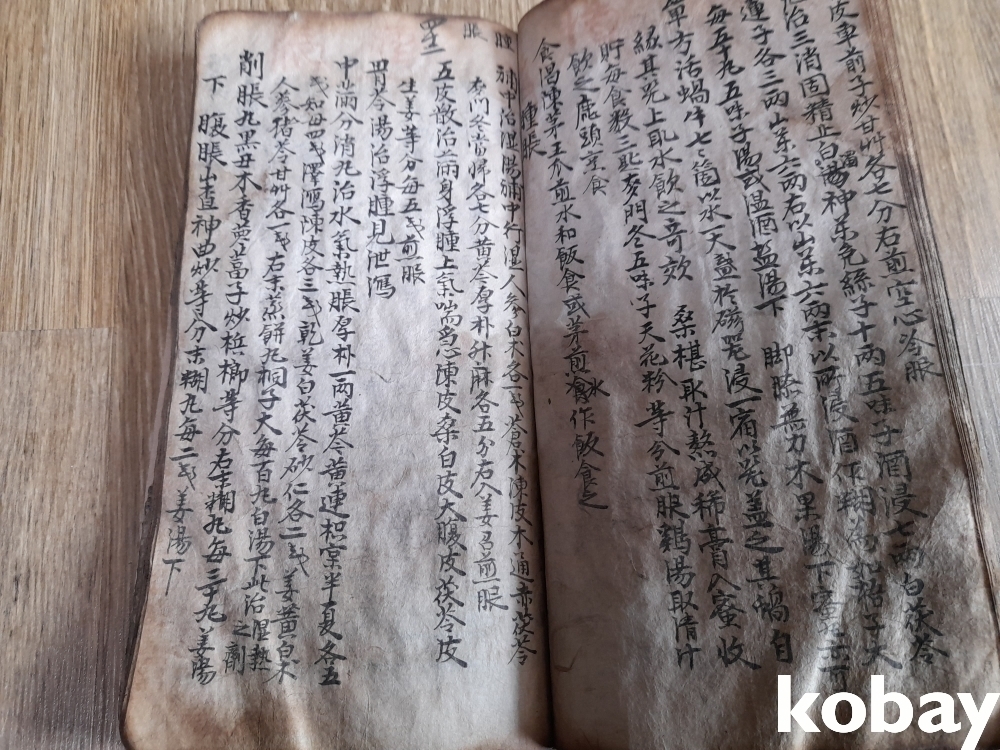 皮車前子炒甘艸各七分右煎空心冷服
治三消固精止白濁神藥兔絲子十兩五味子酒浸七兩白茯苓
蓮子各三兩山藥六兩右以山藥六兩末以所浸酒作糊
每五十丸五味子湯或温酒盐湯下 脚膝無力木果湯下
單方活蝸牛七箇以水一天盏於磁器浸一宿以器盖之其蝸自
緣其器上取水飲之奇效 桑椹取汁熬成稀膏入蜜收
貯每食数三匙 麥門冬五味子天花粉等分煎服 鷄湯取清汁
飲之 鹿頭烹食
食渴陳茅 王瓜煎水和飯食或茅煎水作飯食之
腫脹
補中治湿湯補中行湿人參白朮各一戋蒼朮陳皮木通赤茯苓
麥門冬當歸各七分黃芩厚朴升麻各五分右入姜召煎服
五皮散治滿身浮腫上氣喘急陳皮桑白皮大腹皮茯苓皮
生姜等分每五戋煎服
胃苓湯治浮腫見泄瀉
中滿分消丸治水氣熱脹厚朴一兩黃芩黃連枳宲半夏各五
戋知母四戋澤瀉陳皮各三戋乾姜白茯苓砂仁各二戋姜黃白朮
人參猪苓甘艸各一戋右末蒸餅丸桐子大每百丸白湯下此治湿熱
之劑
削脹丸黒丑木香蔔子炒梹榔等分右末糊丸每三十丸姜湯
下
腹脹 神曲炒等分末糊丸每二戋姜湯下
腫
脹
kobay